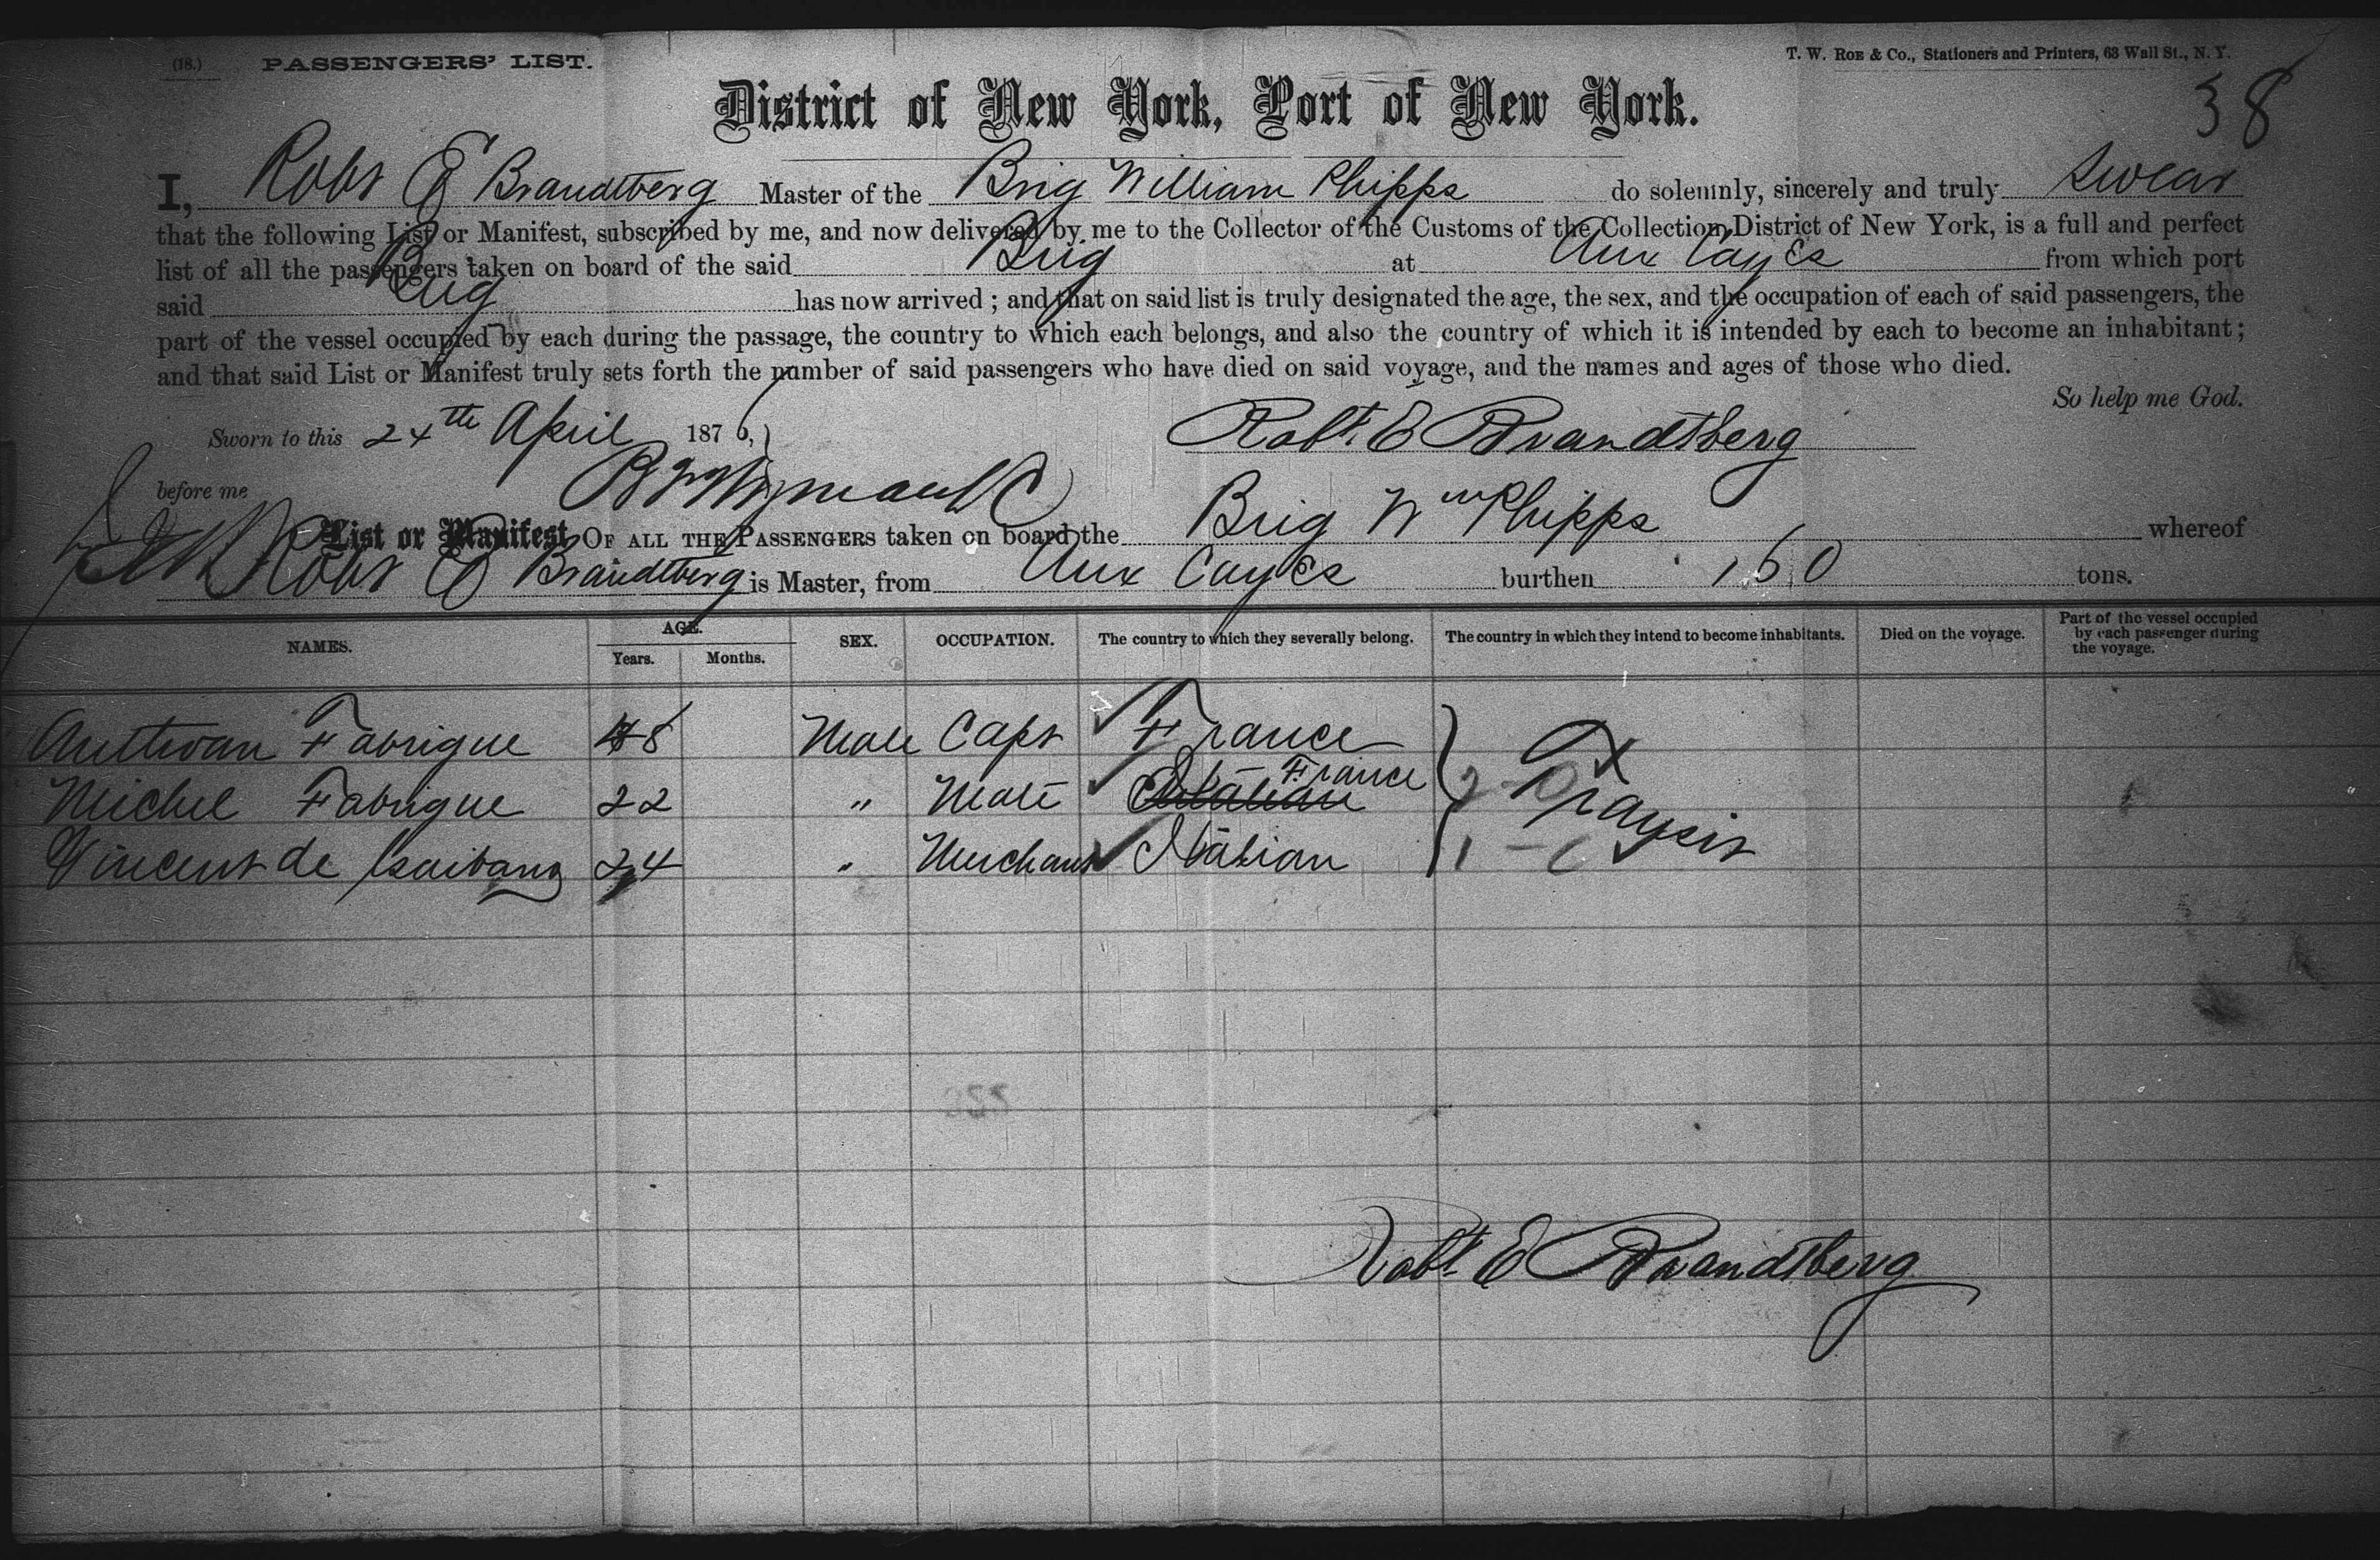 (18.) PASSENGERS' LIST. T. W. ROE & CO., Stationers and Printers, 63 Wall St., N. Y.
38
District of New York, Port of New York.
I, Robt E Brandtberg Master of the Brig William Phipps do solemnly, sincerely and truly swear
that the following List or Manifest, subscribed by me, and now delivered by me to the Collector of the Customs of the Collection District of New York, is a full and perfect
list of all the passengers taken on board of the said Brig at Aux Cayes from which port
said Brig has now arrived; and that on said list is truly designated the age, the sex, and the occupation of each of said passengers, the
part of the vessel occupied by each during the passage, the country to which each belongs, and also the country of which it is intended by each to become an inhabitant;
and that said List or Manifest truly sets forth the number of said passengers who have died on said voyage, and the names and ages of those who died.
So help me God.
Sworn to this 24th April 1876, Robt. E Brandtberg
before me
List or Manifest OF ALL THE PASSENGERS taken on board the Brig Wm Phipps whereof
Robt E Brandtberg is Master, from Aux Cayes burthen 160 tons.
NAMES. AGE. Years. Months. SEX. OCCUPATION. The country to which they severally belong. The country in which they intend to become inhabitants. Died on the voyage. Part of the vessel occupied by each passenger during the voyage.
Fabrigue 48 Male Capt France
Michel Fabrigue 22 " Mate Italian France
Vincent de 24 " Merchant Italian
Robt. E Brandtberg